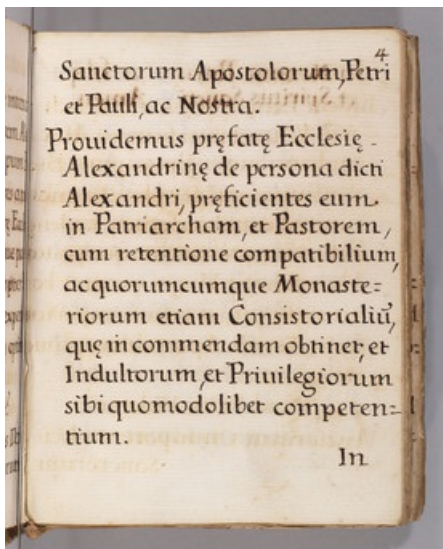 4
Sanctorum Apostolorum, Petri
et Pauli, ac Nostra.
Prouidemus pręfatę Ecclesię
Alexandrinę de persona dicti
Alexandri, pręficientes eum
in Patriarcham, et Pastorem,
cum retentione compatibilium,
ac quorumcumque Monaste=
riorum etiam Consistorialiũ,
quę in commendam obtinet, et
Indultorum, et Priuilegiorum
sibi quomodolibet competen=
tium.
In